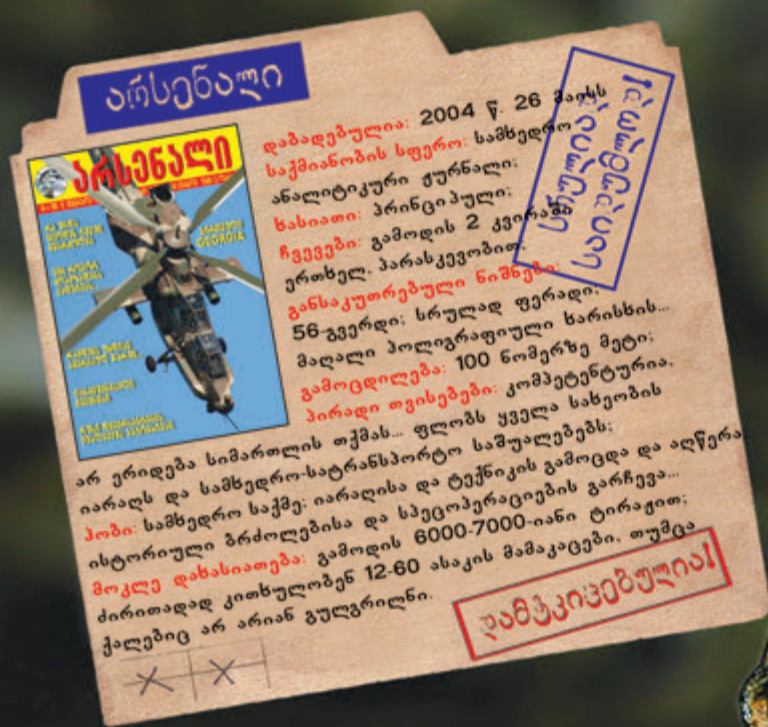 არსენალი
სრულიად
საიდუმლო!
არსენალი
GEORGIA
დაბადებულია: 2004 წ. 26 მაისს
საქმიანობის სფერო: სამხედრო
ანალიტიკური ჟურნალი;
ხასიათი: პრინციპული;
ჩვევები: გამოდის 2 კვირაში
ერთხელ, პარასკევობით.
განსაკუთრებული ნიშნები:
56-გვერდი; სრულად ფერადი;
მაღალი პოლიგრაფიული ხარისხის...
გამოცდილება: 100 ნომერზე მეტი;
პირადი თვისებები: კომპეტენტურია,
არ ერიდება სიმართლის თქმას... ფლობს ყველა სახეობის
იარაღს და სამხედრო-სატრანსპორტო საშუალებებს;
ჰობი: სამხედრო საქმე; იარაღისა და ტექნიკის გამოცდა და აღწერა
ისტორიული ბრძოლებისა და სპეცოპერაციების გარჩევა...
მოკლე დახასიათება: გამოდის 6000-7000-იანი ტირაჟით;
ძირითადად კითხულობენ 12-60 ასაკის მამაკაცები, თუმცა
ქალებიც არ არიან გულგრილნი.
დამტკიცებულია!